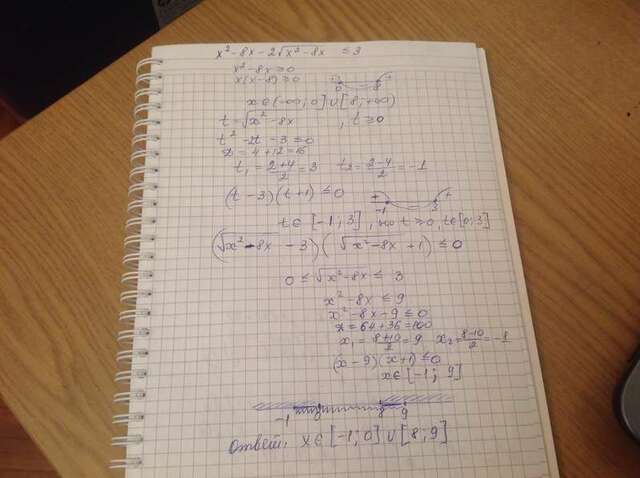 x² - 8x - 2√x² - 8x ≤ 3
x² - 8x ≥ 0
x(x-8) ≥ 0
0 8
x ∈ (-∞; 0] ∪ [8; +∞)
t = √x² - 8x , t ≥ 0
t² - 2t - 3 = 0
D = 4 + 12 = 16
t₁ = (2+4)/2 = 3 t₂ = (2-4)/2 = -1
(t - 3)(t + 1) ≤ 0
+ - +
-1 3
t ∈ [-1; 3], но t ≥ 0, t ∈ [0; 3]
(√x² - 8x - 3)(√x² - 8x + 1) ≤ 0
0 ≤ √x² - 8x ≤ 3
x² - 8x ≤ 9
x² - 8x - 9 ≤ 0
D = 64 + 36 = 100
x₁ = (8+10)/2 = 9 x₂ = (8-10)/2 = -1
(x - 9)(x + 1) ≤ 0
x ∈ [-1; 9]
-1 0 8 9
Ответ: x ∈ [-1; 0] ∪ [8; 9]